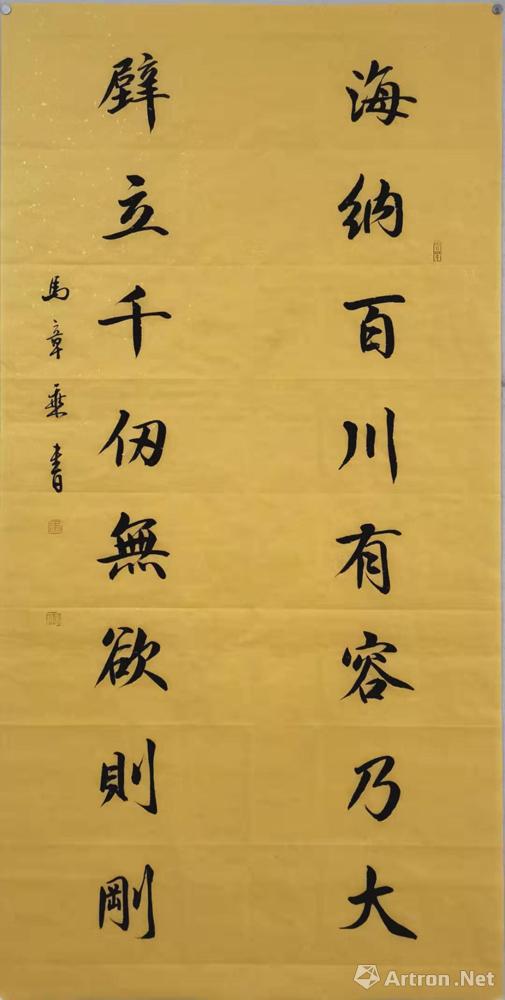 海納百川有容乃大
壁立千仞無欲則剛
馬章乘書
Artron.Net